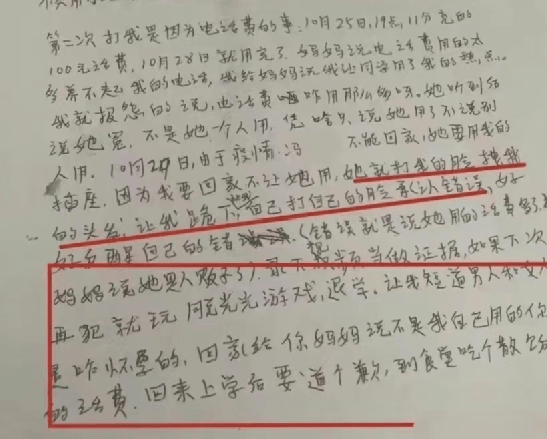 第二次打我是因为电话费的事.10月25日,19点,11分充的
100元话费,10月28日就用完了.妈妈说电话费用的太
多养不起我的电话,我给妈妈说我让同学用了我的热点
我就报怨的说,电话费咋用那么多呀.她听到后
说她冤,不是她一个人用.凭啥只说她用了不说别
人用.10月29日,由于疫情 不能回家,她要用我的
插座.因为我要回家不让她用,她就打我的脸揪我
的头发,让我跪下自己打自己的脸承认错误,
都是自己的错 (错误就是说她用的话费多,
妈妈说她是人贩子) 当做证据,如果下次
再犯就玩脱光光游戏,退学.让我知道男人和女人
是咋怀孕的,回家给你妈妈说不是我自己用的你
的话费.回来上学后要道个歉,到食堂吃个散